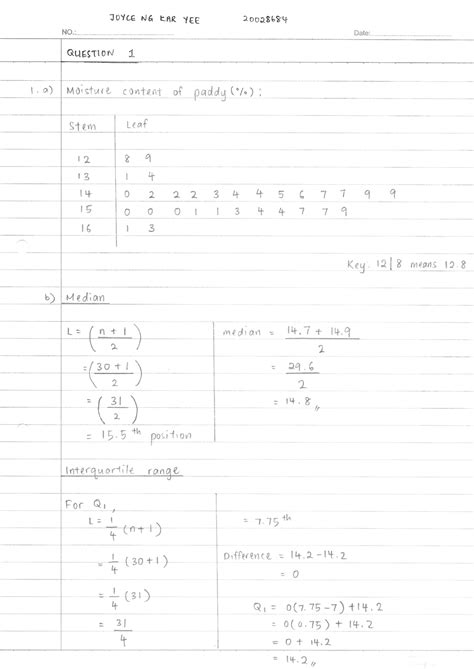 JOYCE NG KAR YEE 20028684
NO.: Date:
QUESTION 1
1. a) Moisture content of paddy (%) :
Stem Leaf
12 8 9
13 1 4
14 0 2 2 2 3 4 4 5 6 7 7 9 9
15 0 0 0 1 1 3 4 4 7 7 9
16 1 3
Key: 12|8 means 12.8
b) Median
L = (n + 1 / 2)
= (30 + 1 / 2)
= (31 / 2)
= 15.5th position
median = 14.7 + 14.9 / 2
= 29.6 / 2
= 14.8
Interquartile range
For Q1,
L = 1/4 (n+1)
= 1/4 (30+1)
= 1/4 (31)
= 31/4
= 7.75th
Difference = 14.2 - 14.2
= 0
Q1 = 0(7.75-7) + 14.2
= 0(0.75) + 14.2
= 0 + 14.2
= 14.2